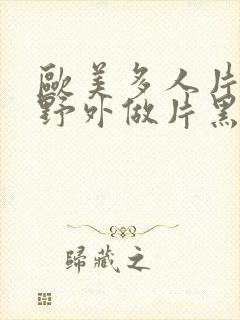 歐美多人片
野外做片黑
歸藏之